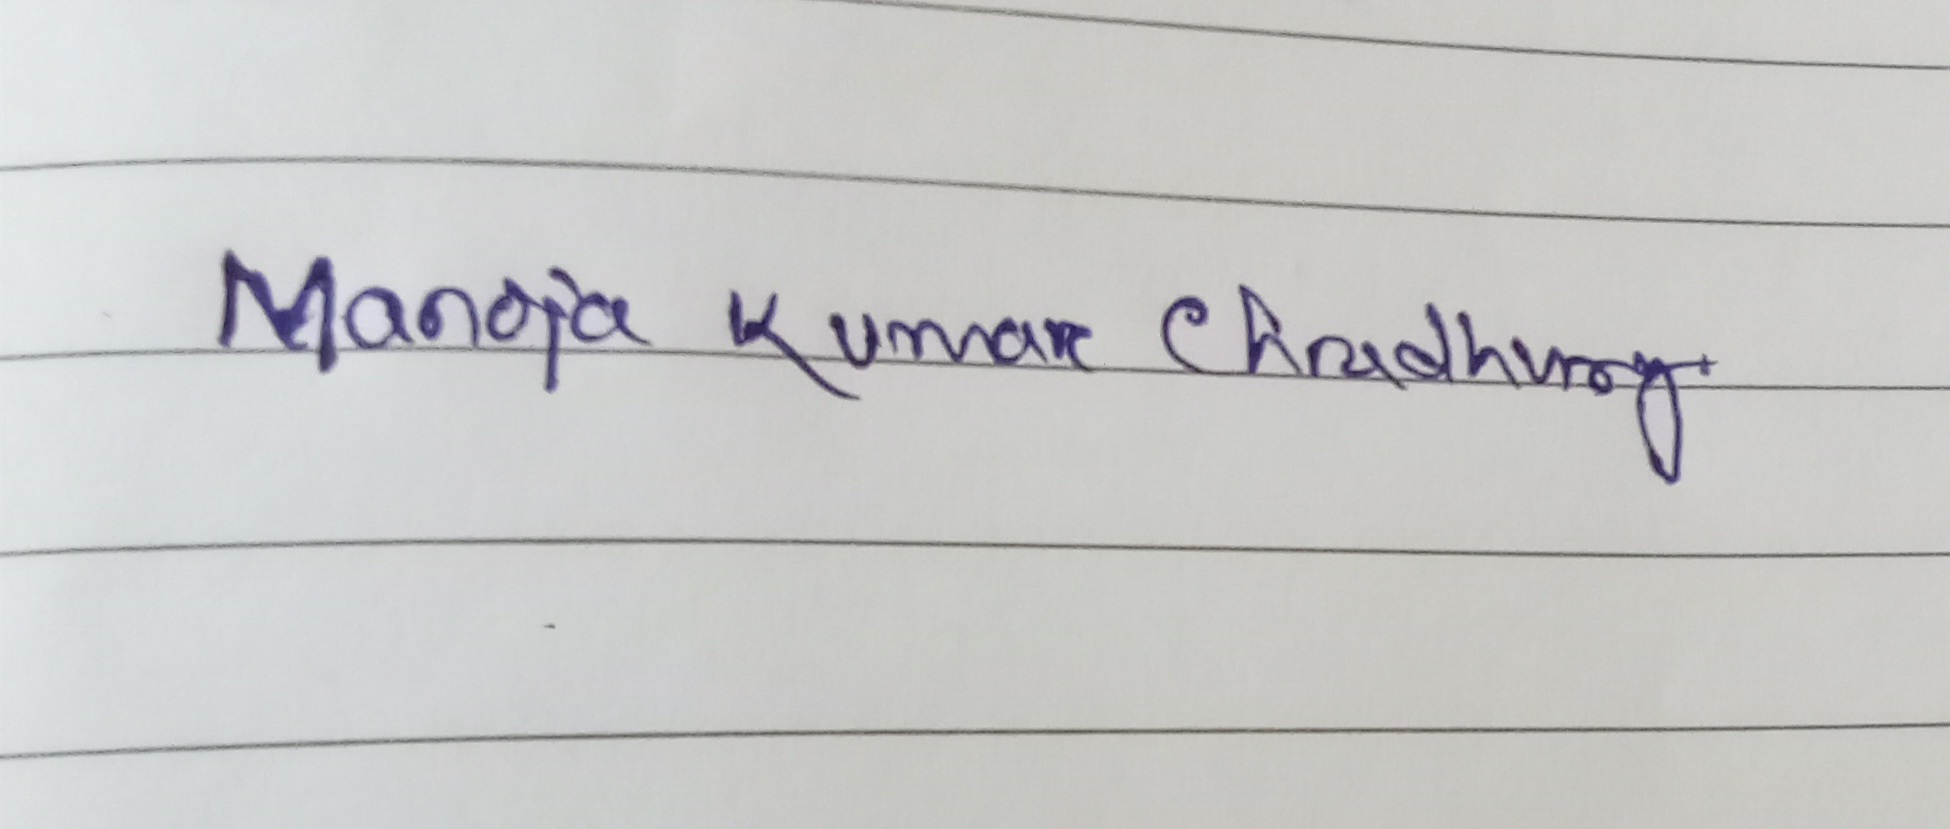 Manoja Kumar Chaudhury